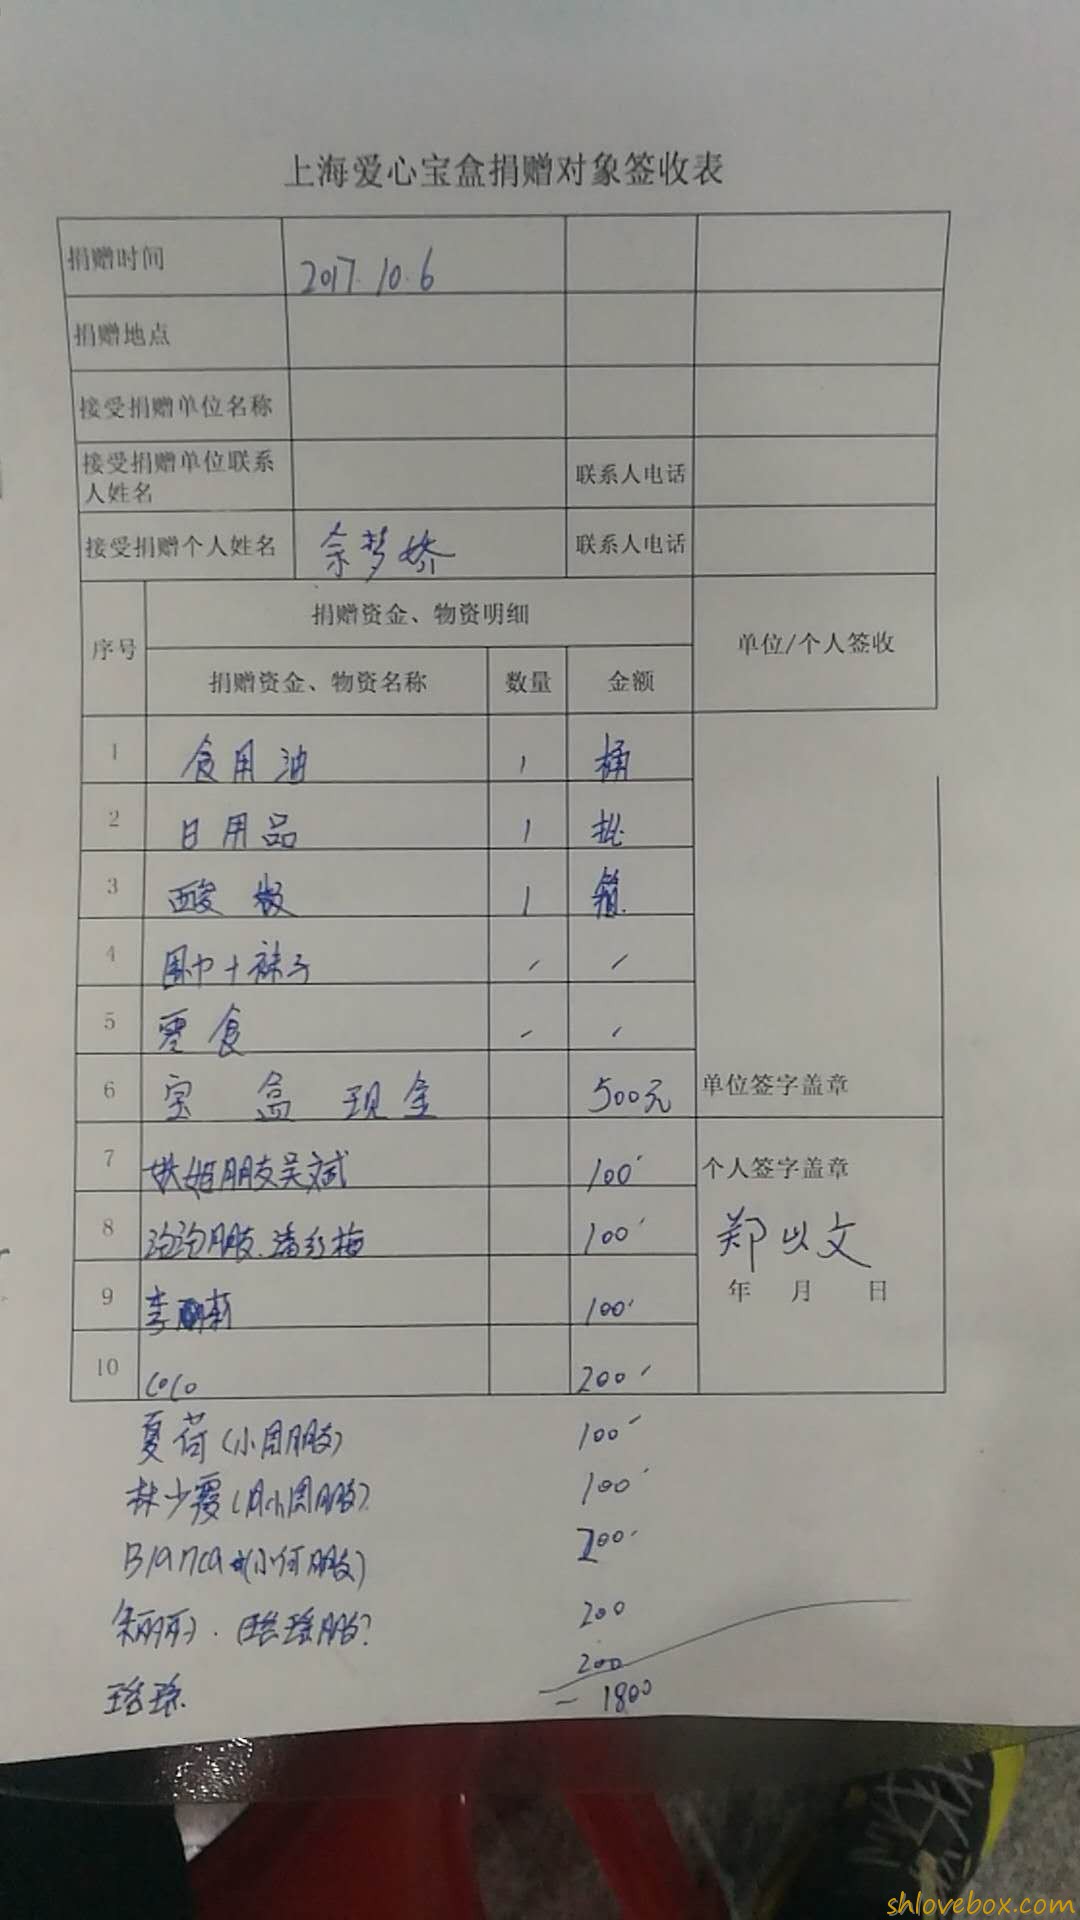 上海爱心宝盒捐赠对象签收表
捐赠时间 2017.10.6
捐赠地点
接受捐赠单位名称
接受捐赠单位联系人姓名 联系人电话
接受捐赠个人姓名 余梦娇 联系人电话
序号 捐赠资金、物资明细 单位/个人签收
捐赠资金、物资名称 数量 金额
1 食用油 1 桶
2 日用品 1 批
3 酸 1 箱
4 围巾+袜子
5 零食
6 宝盒现金 500元 单位签字盖章
7 朋友吴斌 100 个人签字盖章
8 泡泡朋友.潘红梅 100 郑以文
年 月 日
9 李丽 100
10 coco 200
夏荷(小周朋友) 100
林少霞(小周朋友) 100
Bianca(小何朋友) 200
朱丽丽 朋友 200
200
1800
shlovebox.com